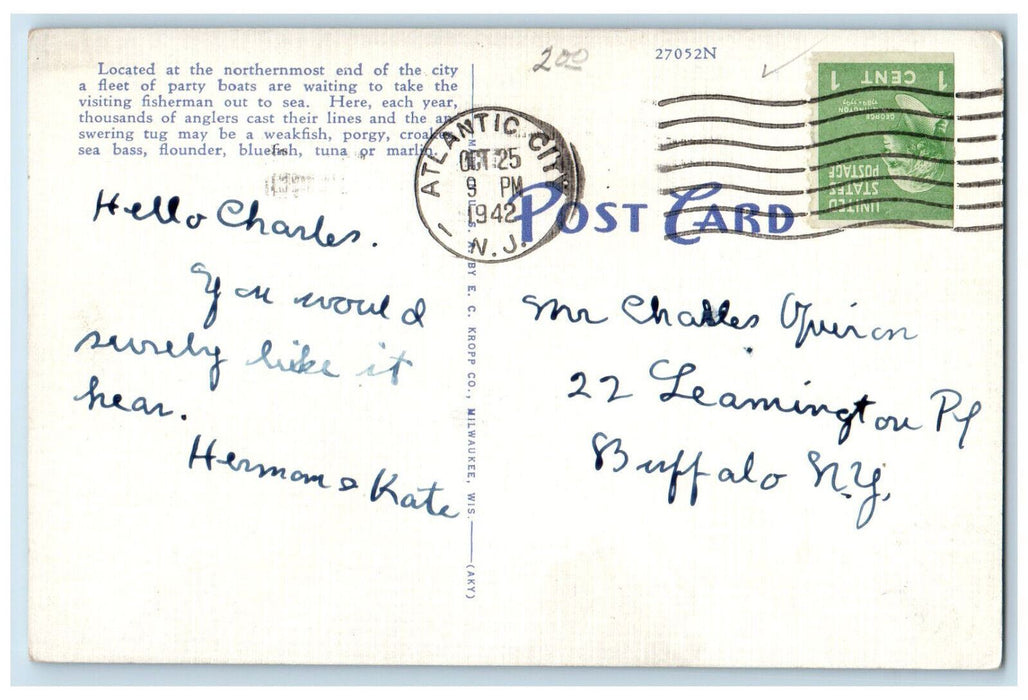 Located at the northernmost end of the city
a fleet of party boats are waiting to take the
visiting fisherman out to sea. Here, each year,
thousands of anglers cast their lines and the an
swering tug may be a weakfish, porgy, croaker
sea bass, flounder, bluefish, tuna or marlin.
Hello Charles.
You would
surely like it
hear.
Herman & Kate
BY E. C. KROPP CO., MILWAUKEE, WIS.
(AKY)
200
27052N
ATLANTIC CITY
OCT 25
9 PM
1942
N.J.
1
POST CARD
UNITED
STATES
POSTAGE
GEORGE
WASHINGTON
1789-1797
1 CENT 1
Mr Charles
22 Leamington Pl
Buffalo N.Y.